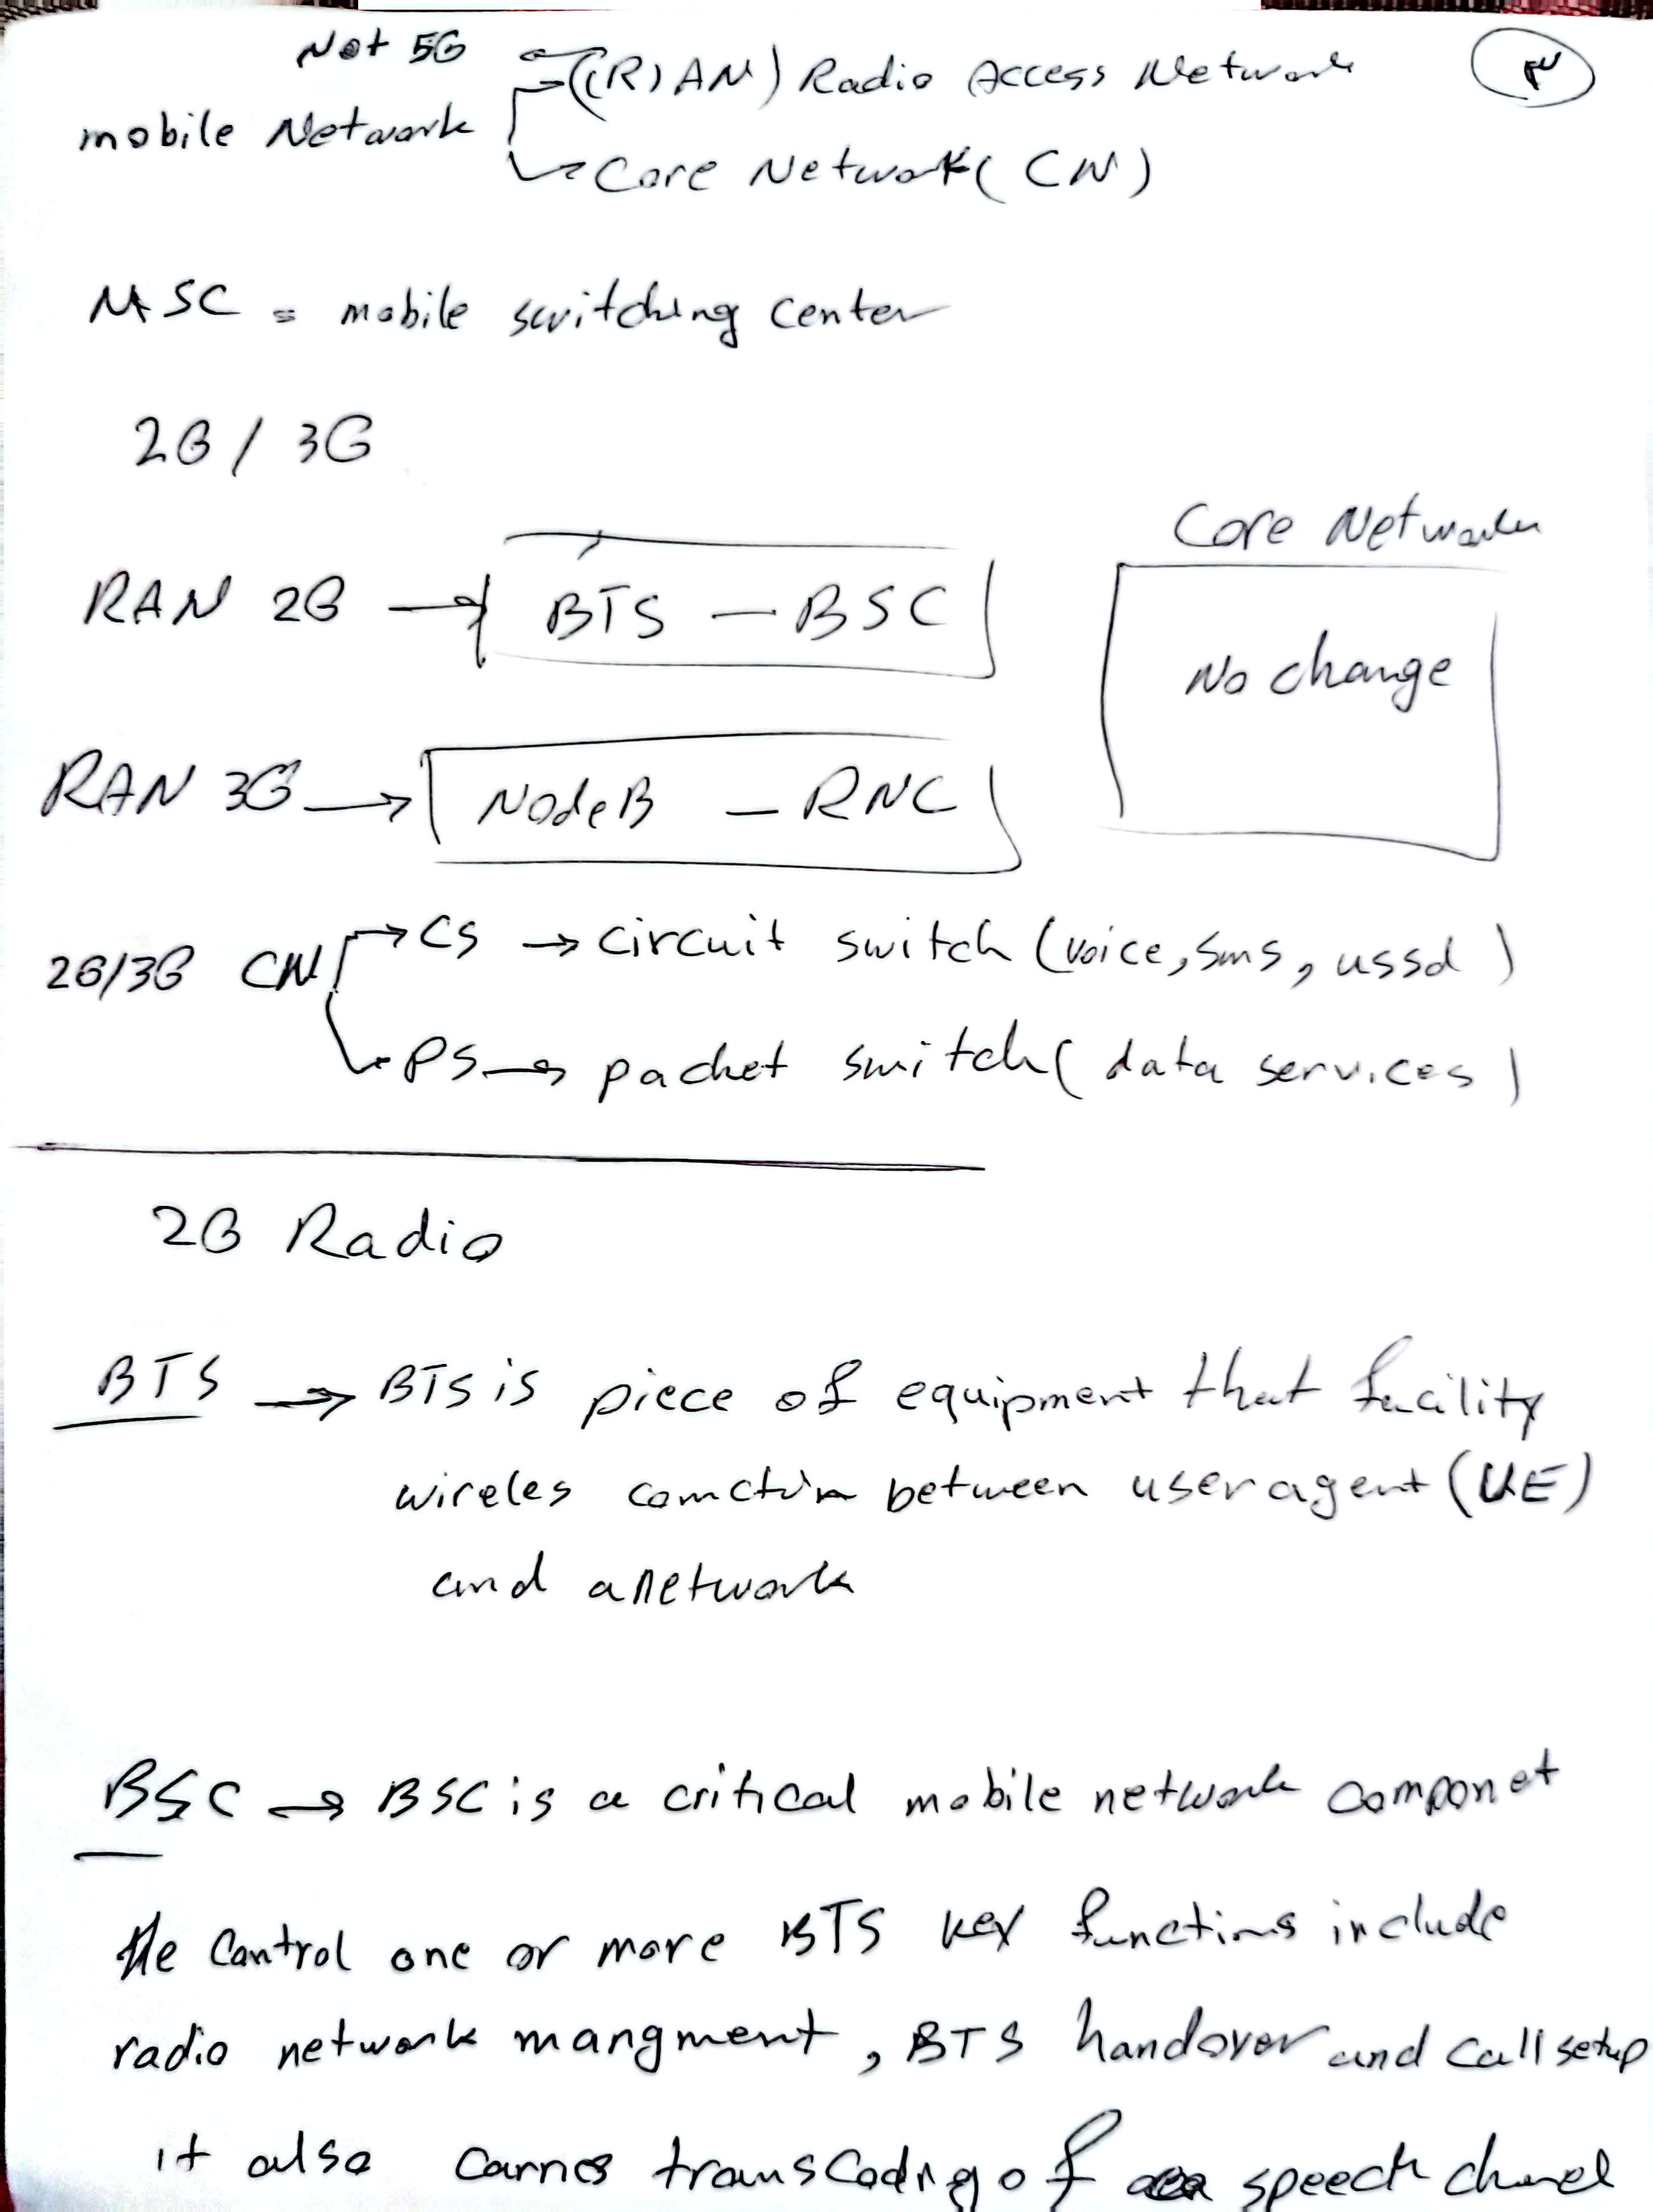 Not 5G
((R)AN) Radio Access Network
mobile Network
Core Network (CN)
MSC = mobile switching center
2G / 3G
Core Network
RAN 2G → BTS - BSC
No change
RAN 3G → NodeB - RNC
2G/3G CN → CS → circuit switch (voice, sms, ussd)
PS → packet switch (data services)
2G Radio
BTS → BTS is piece of equipment that facility
wireles between user agent (UE)
and a network
BSC → BSC is a critical mobile network componet
He Control one or more BTS key functions include
radio network mangment, BTS handover and call setup
it also transcoding of speech